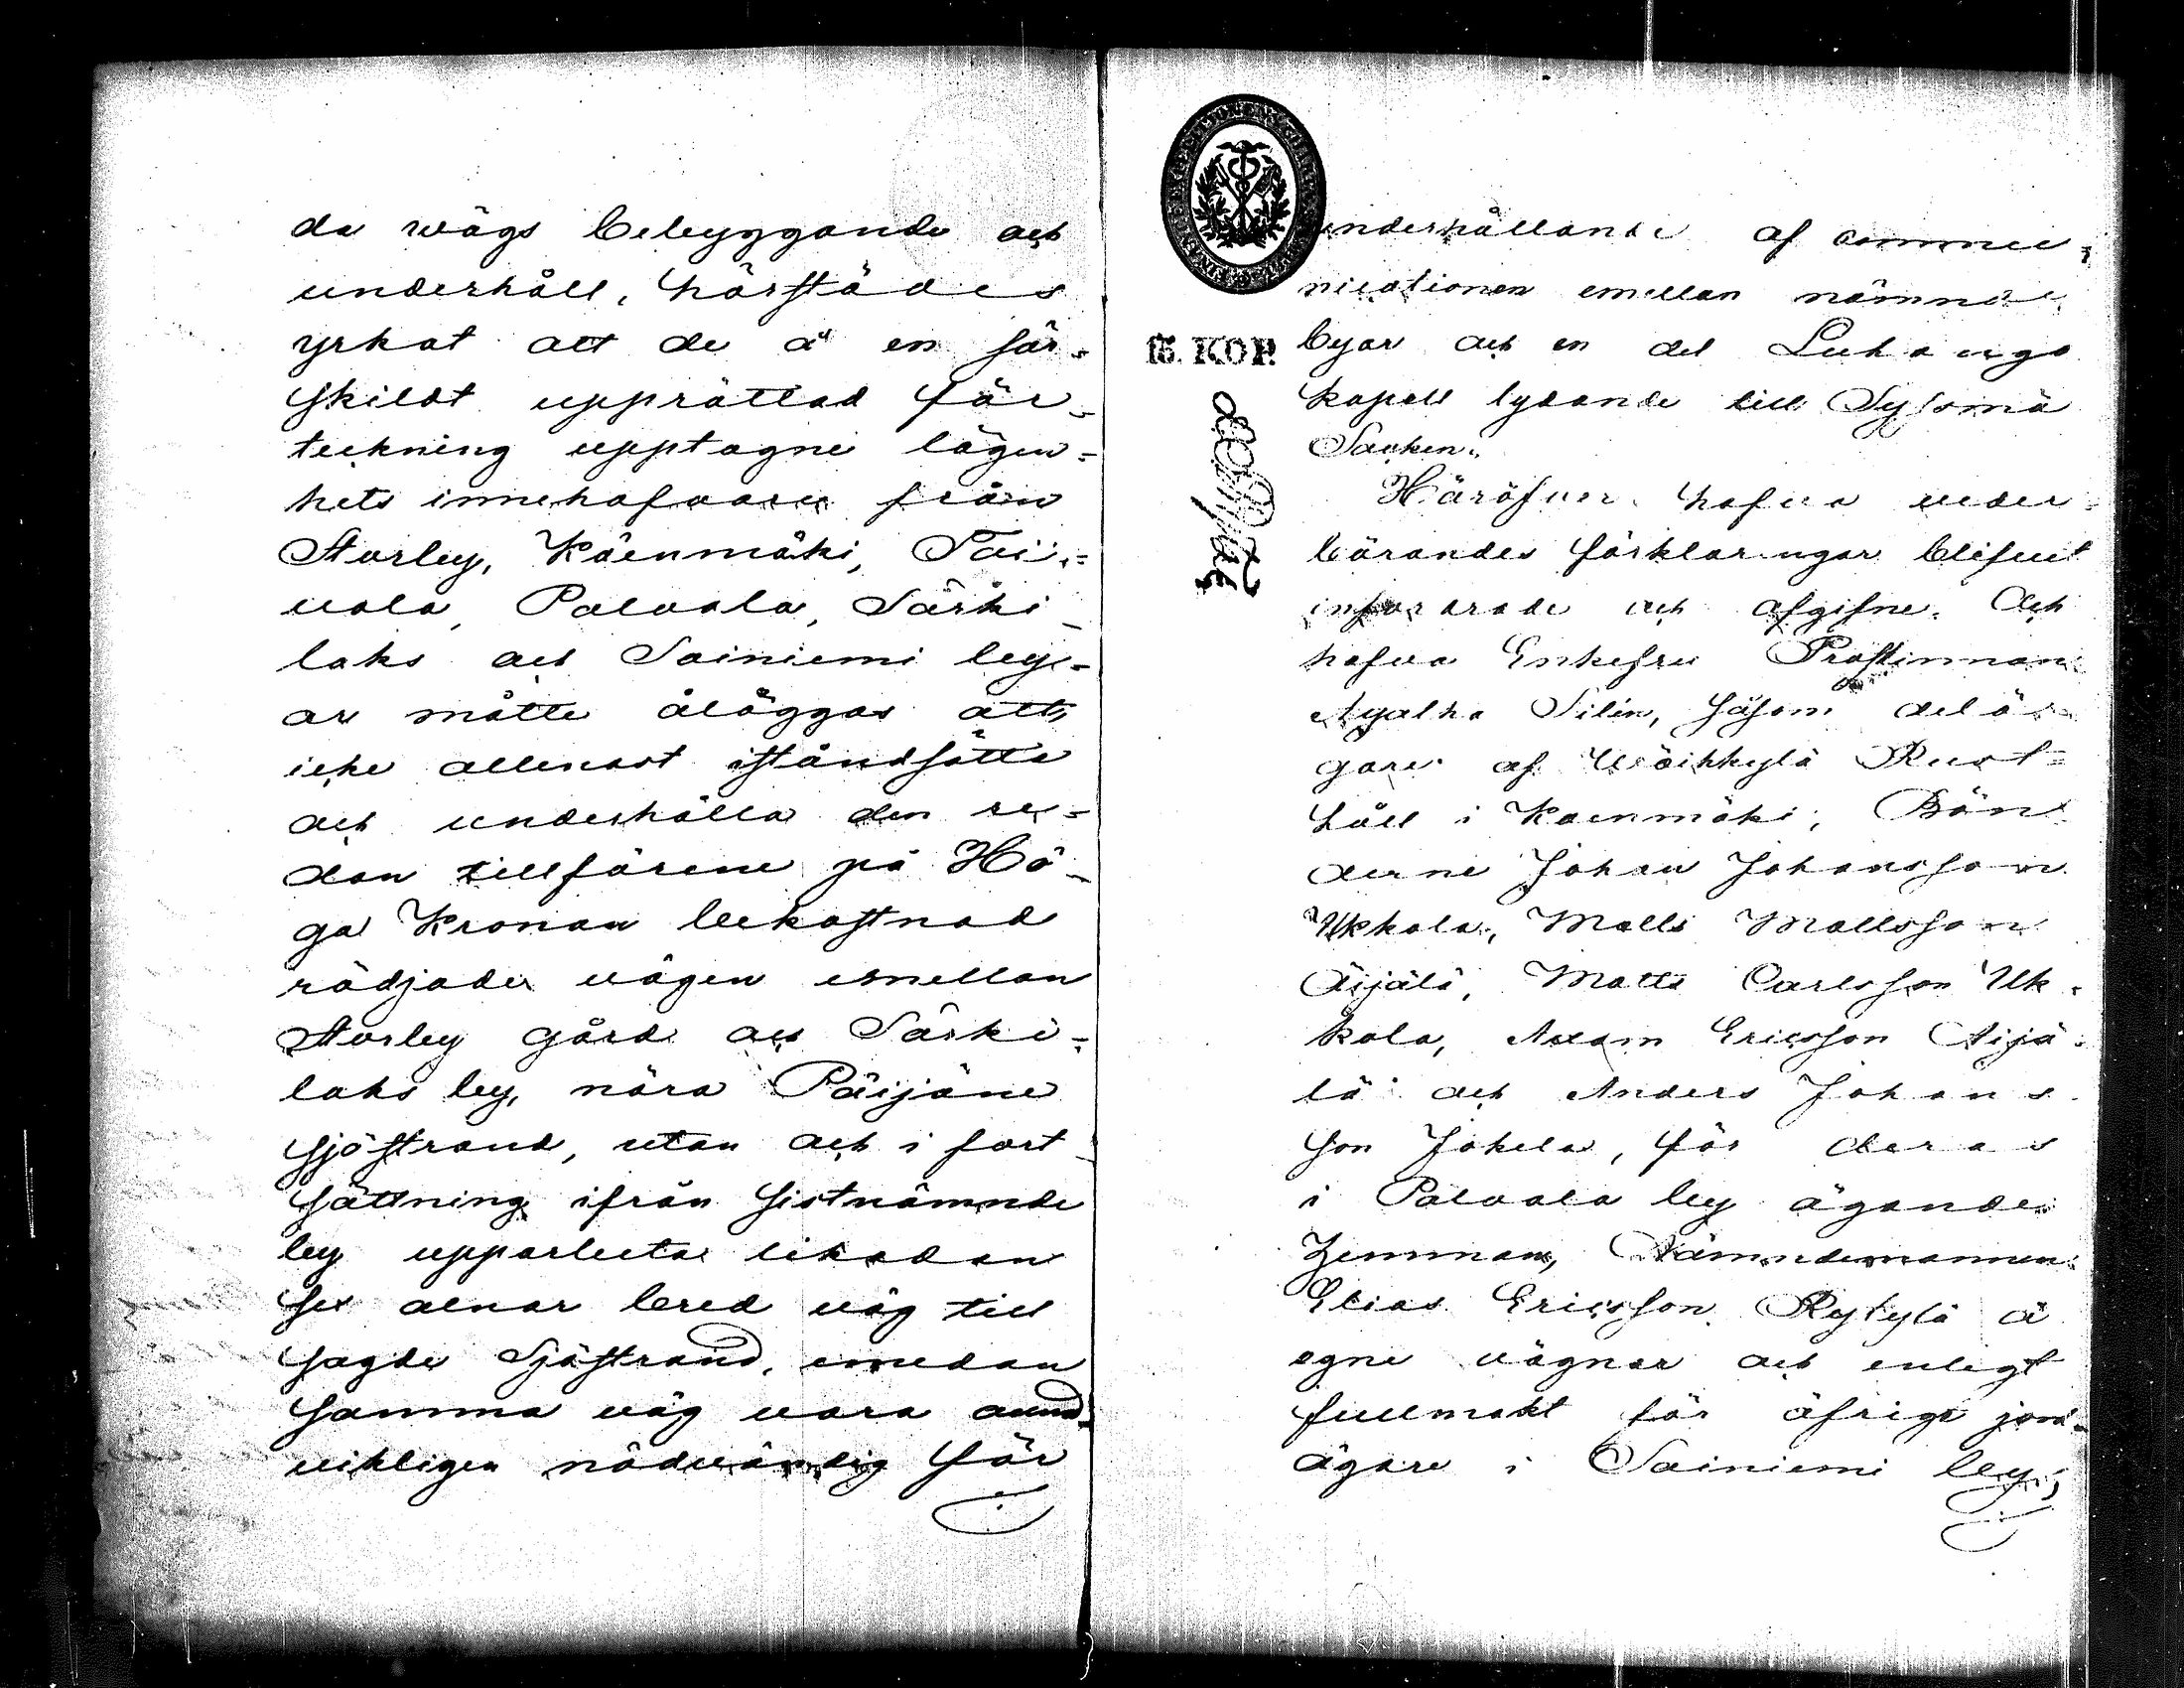 da wägs bebyggande och
underhåll, härstädes
yrkat att de å en sär-
skildt upprättad för-
teckning upptagne lägen=
hets innehafvare från
Storby, Käenmäki, Tai-
vala, Palvala, Särki
laks och Soiniemi by-
ar måtte åläggas att,
icke allenast iståndsätta
och underhålla den re-
dan tillförene på Hö-
ga Kronan bekostnad
rödjade vägen emellan
Storby gård och Särki-
laks by, nära Päijäne
sjöstrand, utan och i fort
sättning ifrån sistnämnde
by upparbeta likadan
sex alnar bred väg till
sagde Sjöstrand, emedan
samma väg vara ound-
vikligen nödvändig för
underhållande af commu-
nicationen emellan nämnde
byar och en del Luhango
kapell lydande till Syssmä
Socken.
15. KOP.
Häröfver hafva veder-
börandes förklaringar blifvit
infordrade och afgifne. Och
hafva Enkefru Prostinnan
Agatha Silén, såsom delä-
gare af Wäihkylä Rust=
håll i Kaenmäki, Bön
derne Johan Johansson
Ukkola, Matts Mattsson
Äijälä, Matts Carlsson Uk-
kola, Adam Ericsson Äijä-
lä och Anders Johans
son Jokela, för deras
i Palvala by ägande
Hemman, Nämndemannen
Elias Ericsson Rytylä å
egne vägnar och enligt
fullmakt för öfrige jord-
ägare i Soiniemi by;